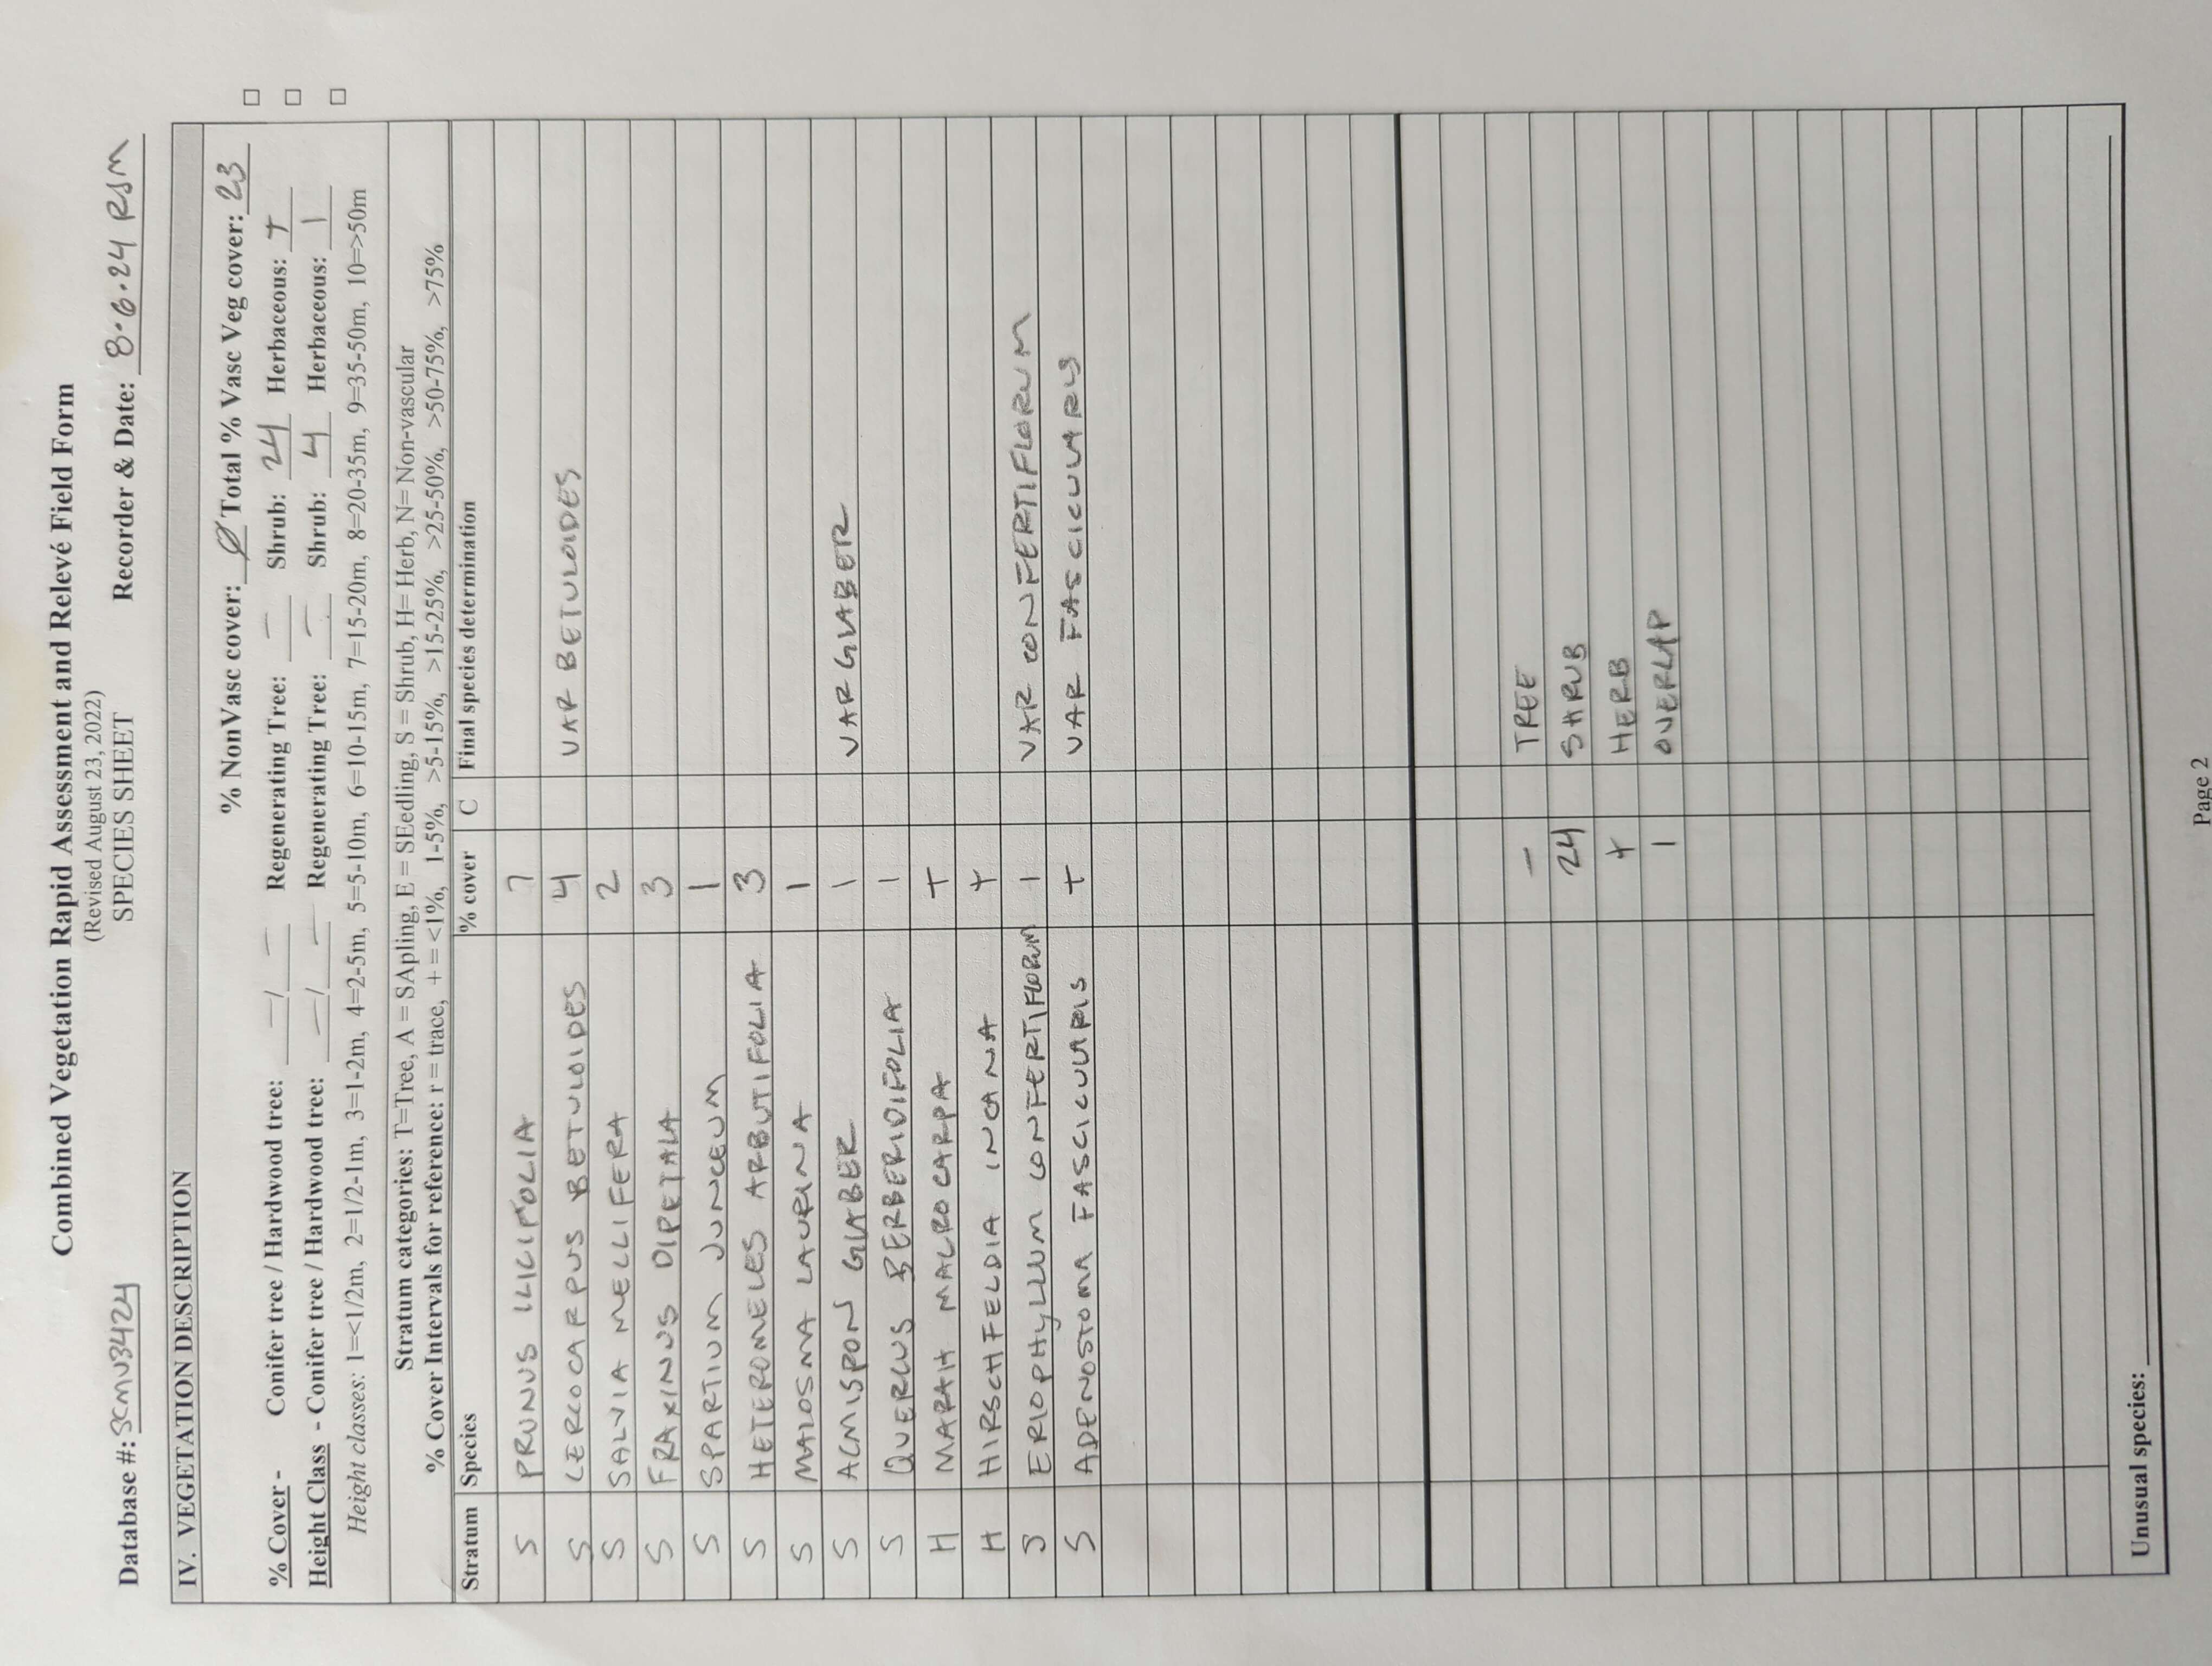 Combined Vegetation Rapid Assessment and Relevé Field Form
(Revised August 23, 2022)
SPECIES SHEET
Database #: 3CMV3424 Recorder & Date: 8.6.24 RSM
IV. VEGETATION DESCRIPTION
% NonVasc cover: Ø Total % Vasc Veg cover: 23 □
% Cover - Conifer tree / Hardwood tree: — / — Regenerating Tree: — Shrub: 24 Herbaceous: + □
Height Class - Conifer tree / Hardwood tree: — / — Regenerating Tree: — Shrub: 4 Herbaceous: 1 □
Height classes: 1=<1/2m, 2=1/2-1m, 3=1-2m, 4=2-5m, 5=5-10m, 6=10-15m, 7=15-20m, 8=20-35m, 9=35-50m, 10=>50m
Stratum categories: T=Tree, A = SApling, E = SEedling, S = Shrub, H= Herb, N= Non-vascular
% Cover Intervals for reference: r = trace, + = <1%, 1-5%, >5-15%, >15-25%, >25-50%, >50-75%, >75%
Stratum Species % cover C Final species determination
S PRUNUS ILICIFOLIA 7
S CERCOCARPUS BETULOIDES 4 VAR BETULOIDES
S SALVIA MELLIFERA 2
S FRAXINUS DIPETALA 3
S SPARTIUM JUNCEUM 1
S HETEROMELES ARBUTIFOLIA 3
S MALOSMA LAURINA 1
S ACMISPON GLABER 1 VAR GLABER
S QUERCUS BERBERIDIFOLIA 1
H MARAH MACROCARPA +
H HIRSCHFELDIA INCANA +
S ERIOPHYLLUM CONFERTIFLORUM 1 VAR CONFERTIFLORUM
S ADENOSTOMA FASCICULARIS + VAR FASCICULARIS
— TREE
24 SHRUB
+ HERB
1 OVERLAP
Unusual species:
Page 2